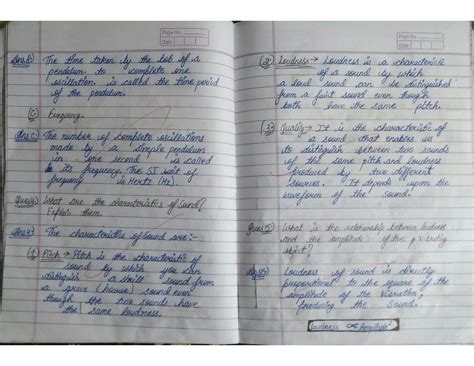 Page No.
Date
Ans B) The time taken by the bob of a
pendulum to complete one
oscillation is called the time period
of the pendulum.
(C) Frequency.
Ans C) The number of complete oscillations
made by a simple pendulum
in one second is called
its frequency. The SI unit of
frequency is Hertz (Hz).
Ques 4) What are the characteristics of Sound?
Explain them.
Ans 4) The characteristics of Sound are:-
(1) Pitch → Pitch is the characteristic of
sound by which you can
distinguish a shrill sound from
a grave (hoarse) sound even
though the two sounds have
the same loudness.
Page No.
Date
(2) Loudness → Loudness is a characteristic
of a sound by which
a loud sound can be distinguished
from a faint sound even though
both have the same pitch.
(3) Quality → It is the characteristic of
a sound that enables us
to distinguish between two sounds
of the same pitch and loudness
produced by two different
sources. It depends upon the
waveform of the sound.
Ques 5) What is the relationship between loudness
and the amplitude of the vibrating
object?
Ans 5) Loudness of sound is directly
proportional to the square of the
amplitude of the vibration,
producing the sound.
Loudness ∝ Amplitude²